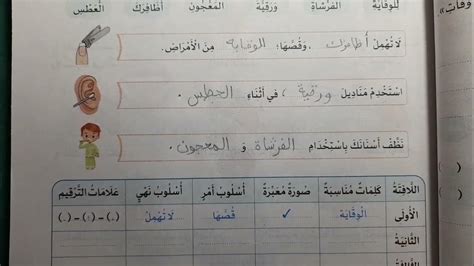 لِلْوِقَايَةِ الفُرْشَاةِ وَرَقِيَّةً المَعْجُونِ أَظَافِرَكَ العَطْسِ
لَا تُهْمِلْ أظافرك، وَقُصَّهَا؛ الوقايه مِنَ الأَمْرَاضِ.
اسْتَخْدِمْ مَنَادِيلَ ورقية، فِي أَثْنَاءِ العطس.
نَظِّفْ أَسْنَانَكَ بِاسْتِخْدَامِ الفرشاة وَ المعجون.
اللَّافِتَةُ كَلِمَاتٌ مُنَاسِبَةٌ صُورَةٌ مُعَبِّرَةٌ أُسْلُوبُ أَمْرٍ أُسْلُوبُ نَهْيٍ عَلَامَاتُ التَّرْقِيمِ
الأُولَى الْوِقَايَة ✓ قُصَّهَا لَا تُهْمِلْ (.) - (؛) - (،)
الثَّانِيَةُ
الثَّالِثَةُ